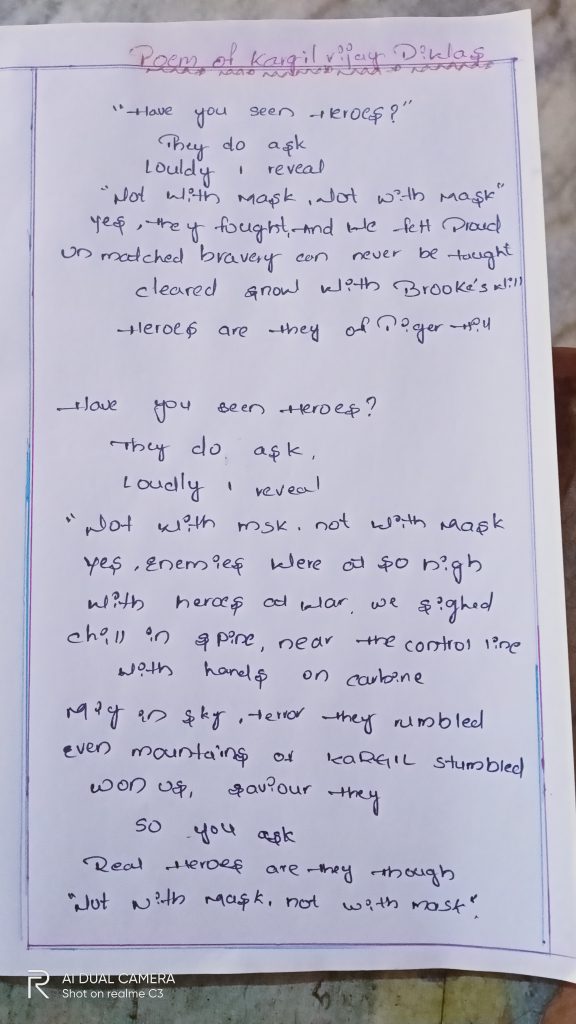 Poem of Kargil vijay Diklas
"Have you seen Heroes?"
They do ask
Louldy i reveal
"Not with mask, Not with mask"
yes, they fought, And we felt Proud
Un matched bravery can never be taught
cleared snow with Brooke's will
Heroes are they of Tiger Hill
Have you seen Heroes?
They do ask,
Loudly i reveal
"Not with msk. not with mask
yes, enemies were at so nigh
with heroes at war, we sighed
chill in spine, near the control line
with hands on carbine
Mig in sky, terror they rumbled
even mountains of KARGIL stumbled
won us, saviour they
so you ask
Real Heroes are they though
"Not with mask, not with mask".
AI DUAL CAMERA
Shot on realme C3